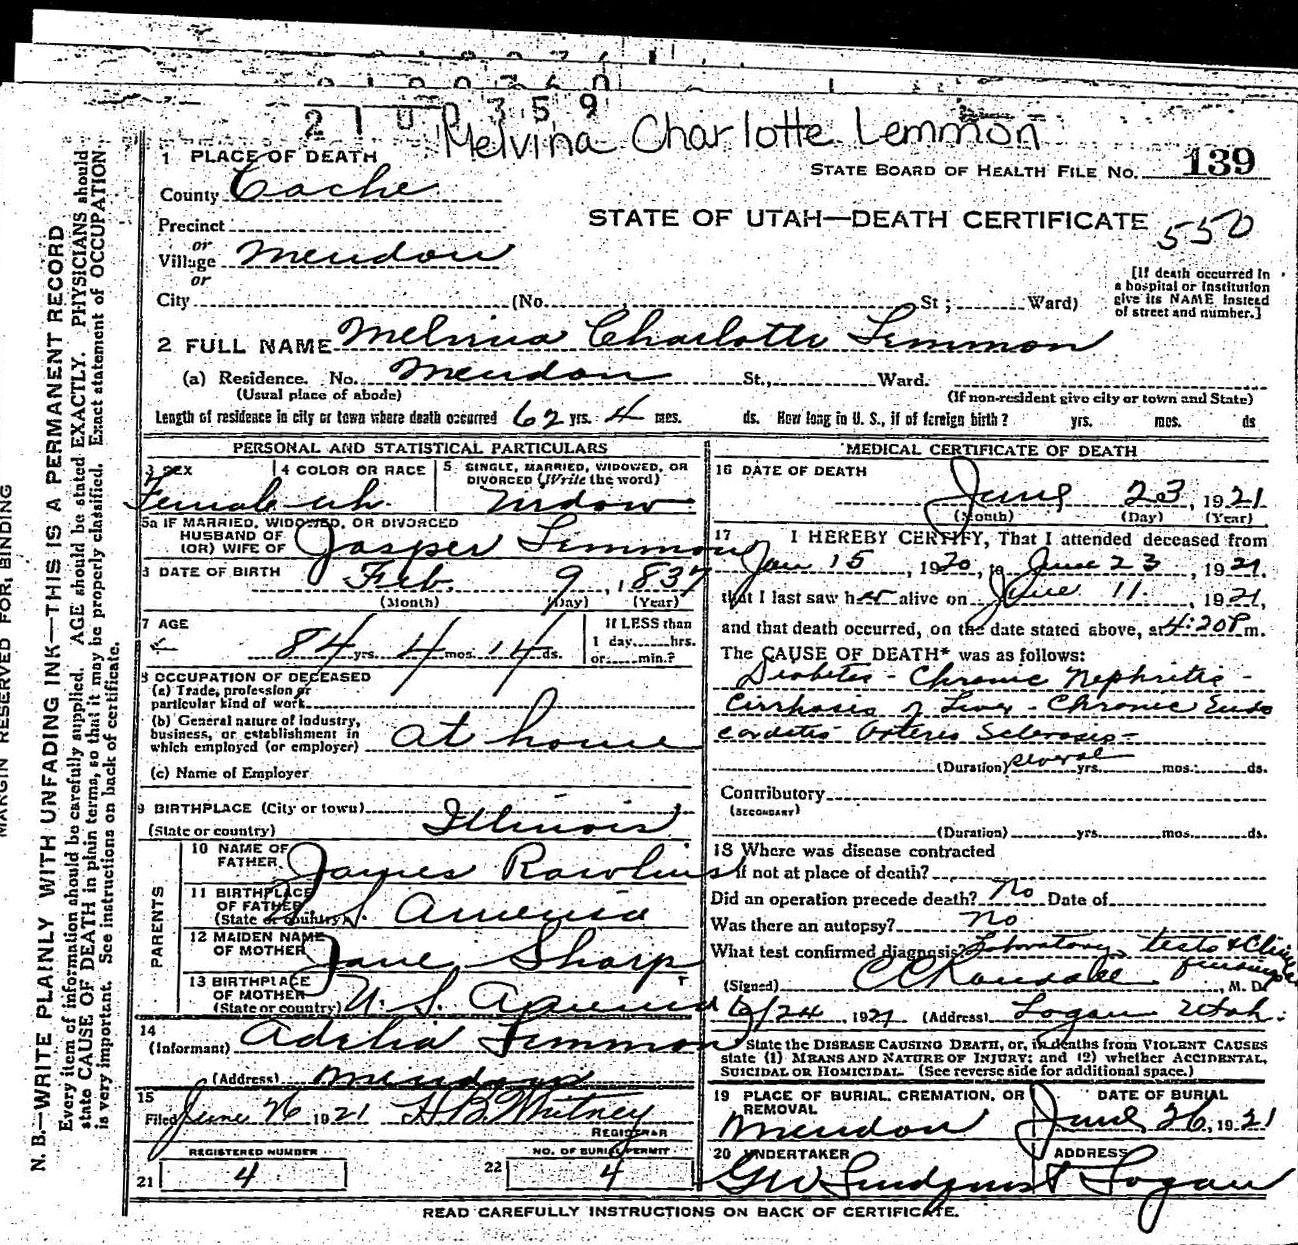 2100359
Melvina Charlotte Lemmon
1 PLACE OF DEATH
STATE BOARD OF HEALTH FILE No. 139
County Cache
STATE OF UTAH—DEATH CERTIFICATE 550
Precinct
or
Village Mendon
or
City (No. St; Ward)
[If death occurred in
a hospital or institution
give its NAME instead
of street and number.]
2 FULL NAME Melvina Charlotte Lemmon
(a) Residence. No. Mendon St., Ward.
(Usual place of abode) (If non-resident give city or town and State)
Length of residence in city or town where death occurred 62 yrs. 4 mos. ds. How long in U. S., if of foreign birth? yrs. mos. ds
PERSONAL AND STATISTICAL PARTICULARS
3 SEX 4 COLOR OR RACE 5 SINGLE, MARRIED, WIDOWED, OR
DIVORCED (Write the word)
Female wh. widow
5a IF MARRIED, WIDOWED, OR DIVORCED
HUSBAND OF
(OR) WIFE OF Jasper Lemmon
DATE OF BIRTH Feb. 9, 1837
(Month) (Day) (Year)
7 AGE If LESS than
84 yrs. 4 mos. 14 ds. 1 day hrs.
or min.?
8 OCCUPATION OF DECEASED
(a) Trade, profession or
particular kind of work
(b) General nature of industry,
business, or establishment in
which employed (or employer) at home
(c) Name of Employer
9 BIRTHPLACE (City or town)
(State or country) Illinois
PARENTS
10 NAME OF
FATHER James Rawlins
11 BIRTHPLACE
OF FATHER
(State or country) U. S. America
12 MAIDEN NAME
OF MOTHER Jane Sharp
13 BIRTHPLACE
OF MOTHER
(State or country) U. S. America
14
(Informant) Adelia Lemmon
(Address) Mendon
15
Filed June 26 1921 H B Whitney
REGISTRAR
REGISTERED NUMBER NO. OF BURIAL PERMIT
21 4 22 4
MEDICAL CERTIFICATE OF DEATH
16 DATE OF DEATH
June 23, 1921
(Month) (Day) (Year)
17 I HEREBY CERTIFY, That I attended deceased from
Jan 15, 1920, to June 23, 1921.
that I last saw her alive on June 11, 1921,
and that death occurred, on the date stated above, at 4:20 P m.
The CAUSE OF DEATH* was as follows:
Diabetes - Chronic Nephritis -
Cirrhosis of Liver - Chronic Endo
carditis Arterio Sclerosis -
(Duration) several yrs. mos. ds.
Contributory
(SECONDARY)
(Duration) yrs. mos. ds.
18 Where was disease contracted
if not at place of death?
Did an operation precede death? No Date of
Was there an autopsy? No
What test confirmed diagnosis? Laboratory tests & Clinical
findings
(Signed) C C Randall, M. D.
6/24, 1921 (Address) Logan Utah.
State the DISEASE CAUSING DEATH, or, in deaths from VIOLENT CAUSES
state (1) MEANS AND NATURE OF INJURY; and (2) whether ACCIDENTAL,
SUICIDAL OR HOMICIDAL. (See reverse side for additional space.)
19 PLACE OF BURIAL, CREMATION, OR
REMOVAL DATE OF BURIAL
Mendon June 26, 1921
20 UNDERTAKER ADDRESS
G W Lindquist Logan
READ CAREFULLY INSTRUCTIONS ON BACK OF CERTIFICATE.
MARGIN RESERVED FOR BINDING
N. B.—WRITE PLAINLY WITH UNFADING INK—THIS IS A PERMANENT RECORD
Every item of information should be carefully supplied. AGE should be stated EXACTLY. PHYSICIANS should
state CAUSE OF DEATH in plain terms, so that it may be properly classified. Exact statement of OCCUPATION
is very important. See instructions on back of certificate.